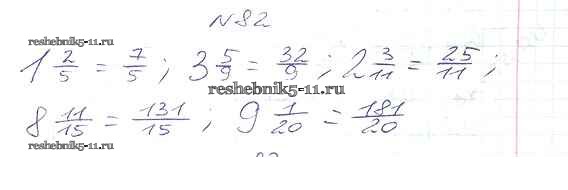 №82
reshebnik5-11.ru
1 2/5 = 7/5 ; 3 5/9 = 32/9 ; 2 3/11 = 25/11 ;
reshebnik5-11.ru
8 11/15 = 131/15 ; 9 1/20 = 181/20
reshebnik5-11.ru